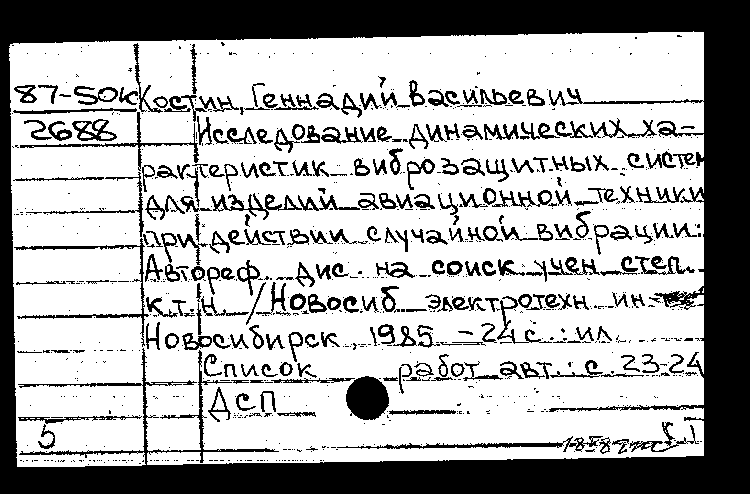 87-50к Костин, Геннадий Васильевич
2688 Исследование динамических ха-
рактеристик виброзащитных систем
для изделий авиационной техники
при действии случайной вибрации:
Автореф. дис. на соиск. учен. степ.
к.т.н. / Новосиб. электротехн. ин-
Новосибирск, 1985 - 24 с.: ил.
Список работ авт.: с. 23-24
ДСП
5